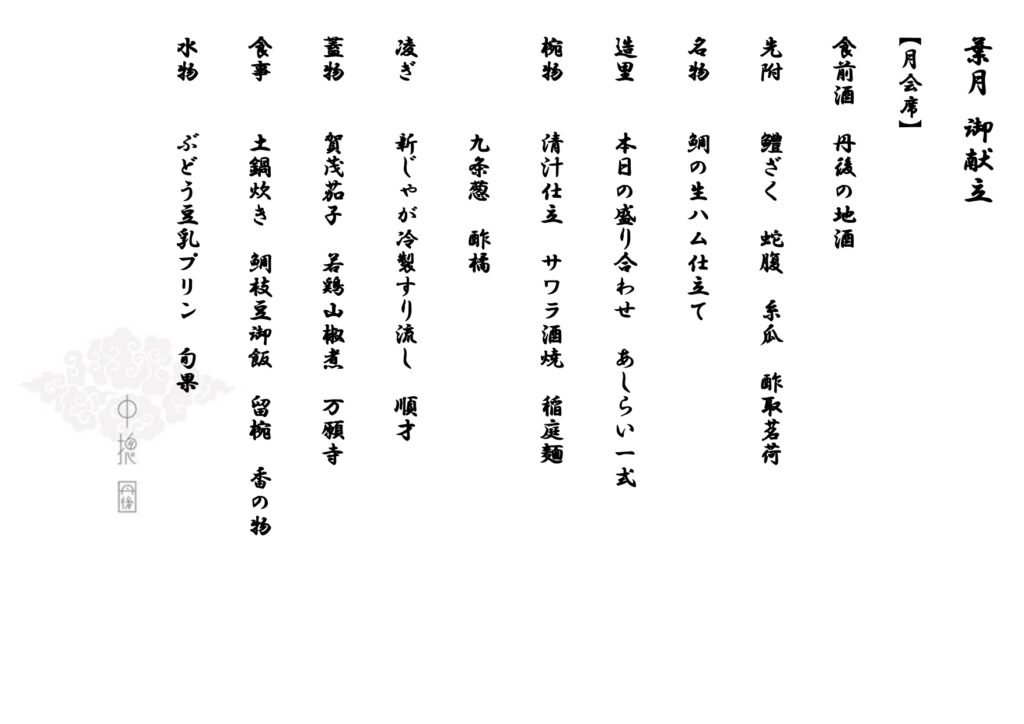 葉月 御献立
【月会席】
食前酒 丹後の地酒
先附 鱧ざく 蛇腹 糸瓜 酢取茗荷
名物 鯛の生ハム仕立て
造里 本日の盛り合わせ あしらい一式
椀物 清汁仕立 サワラ酒焼 稲庭麺
九条葱 酢橘
凌ぎ 新じゃが冷製すり流し 順才
蓋物 賀茂茄子 若鶏山椒煮 万願寺
食事 土鍋炊き 鯛枝豆御飯 留椀 香の物
水物 ぶどう豆乳プリン 旬果
中
丹後